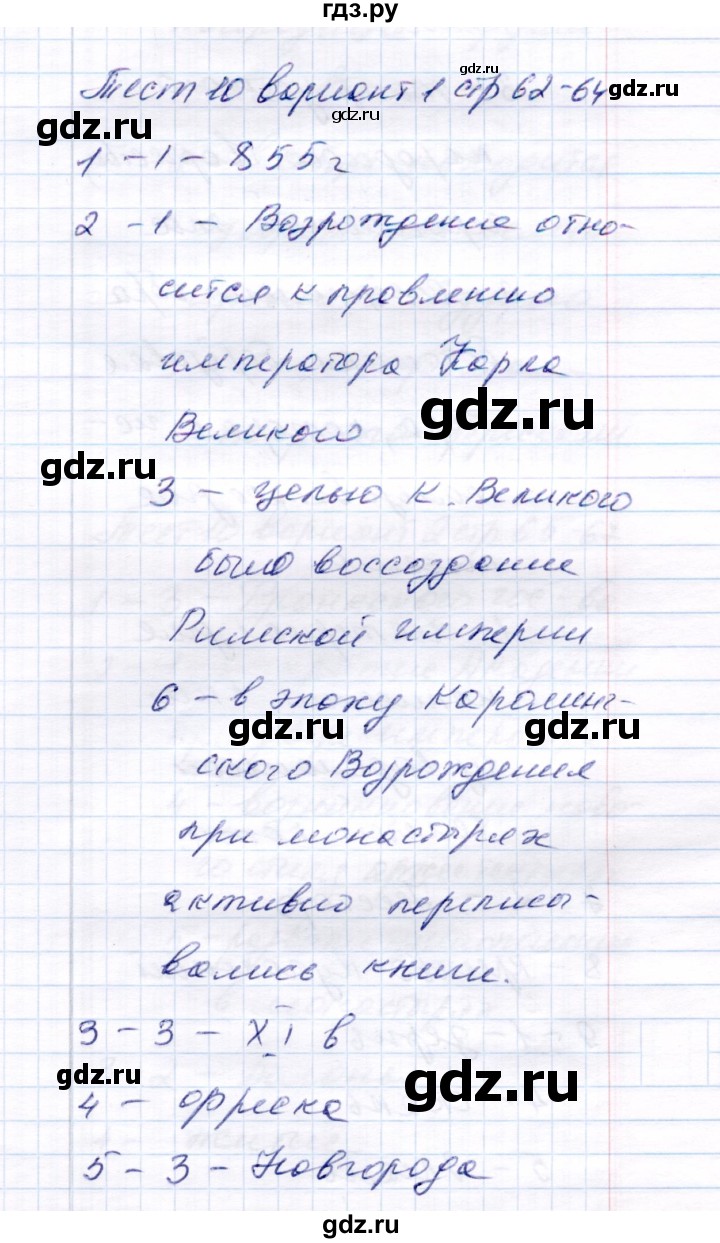 гдз.ру
gdz.ru
Тест 10 вариант 1 стр 62-64
gdz.ru
gdz.ru
gdz.ru
1 - 1 - 855г
2 - 1 - Возрождение отно-
сится к правлению
императора Карла
gdz.ru
Великого
gdz.ru
3 - целью К. Великого
было воссоздание
Римской империи
6 - в эпоху Каролинг-
gdz.ru
gdz.ru
ского Возрождения
при монастырях
активно переписы-
вались книги.
3 - 3 - XI в
gdz.ru
gdz.ru
4 - фреска
5 - 3 - Новгорода
gdz.ru
gdz.ru